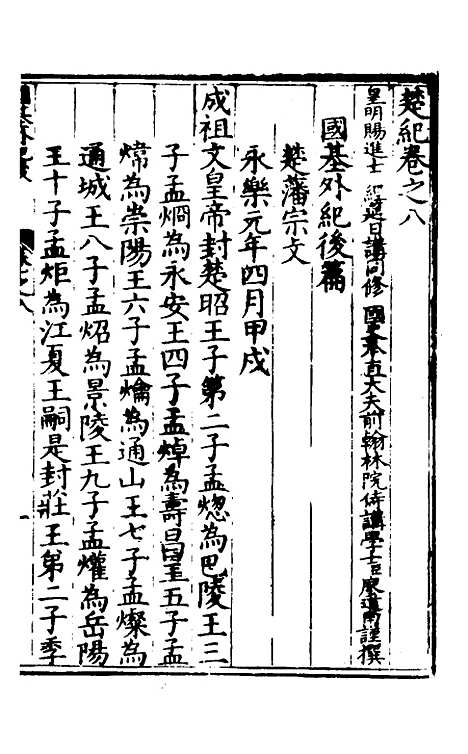 楚紀卷之八
皇明賜進士 經筵日講同修 國史奉直大夫前翰林院侍講學士臣廖道南謹撰
國基外紀後篇
楚藩宗文
永樂元年四月甲戌
成祖文皇帝封楚昭王子第二子孟熜為巴陵王三
子孟烱為永安王四子孟焯為壽昌王五子孟
煒為崇陽王六子孟爚為通山王七子孟燦為
通城王八子孟炤為景陵王九子孟爟為岳陽
王十子孟炬為江夏王嗣是封莊王第二子季